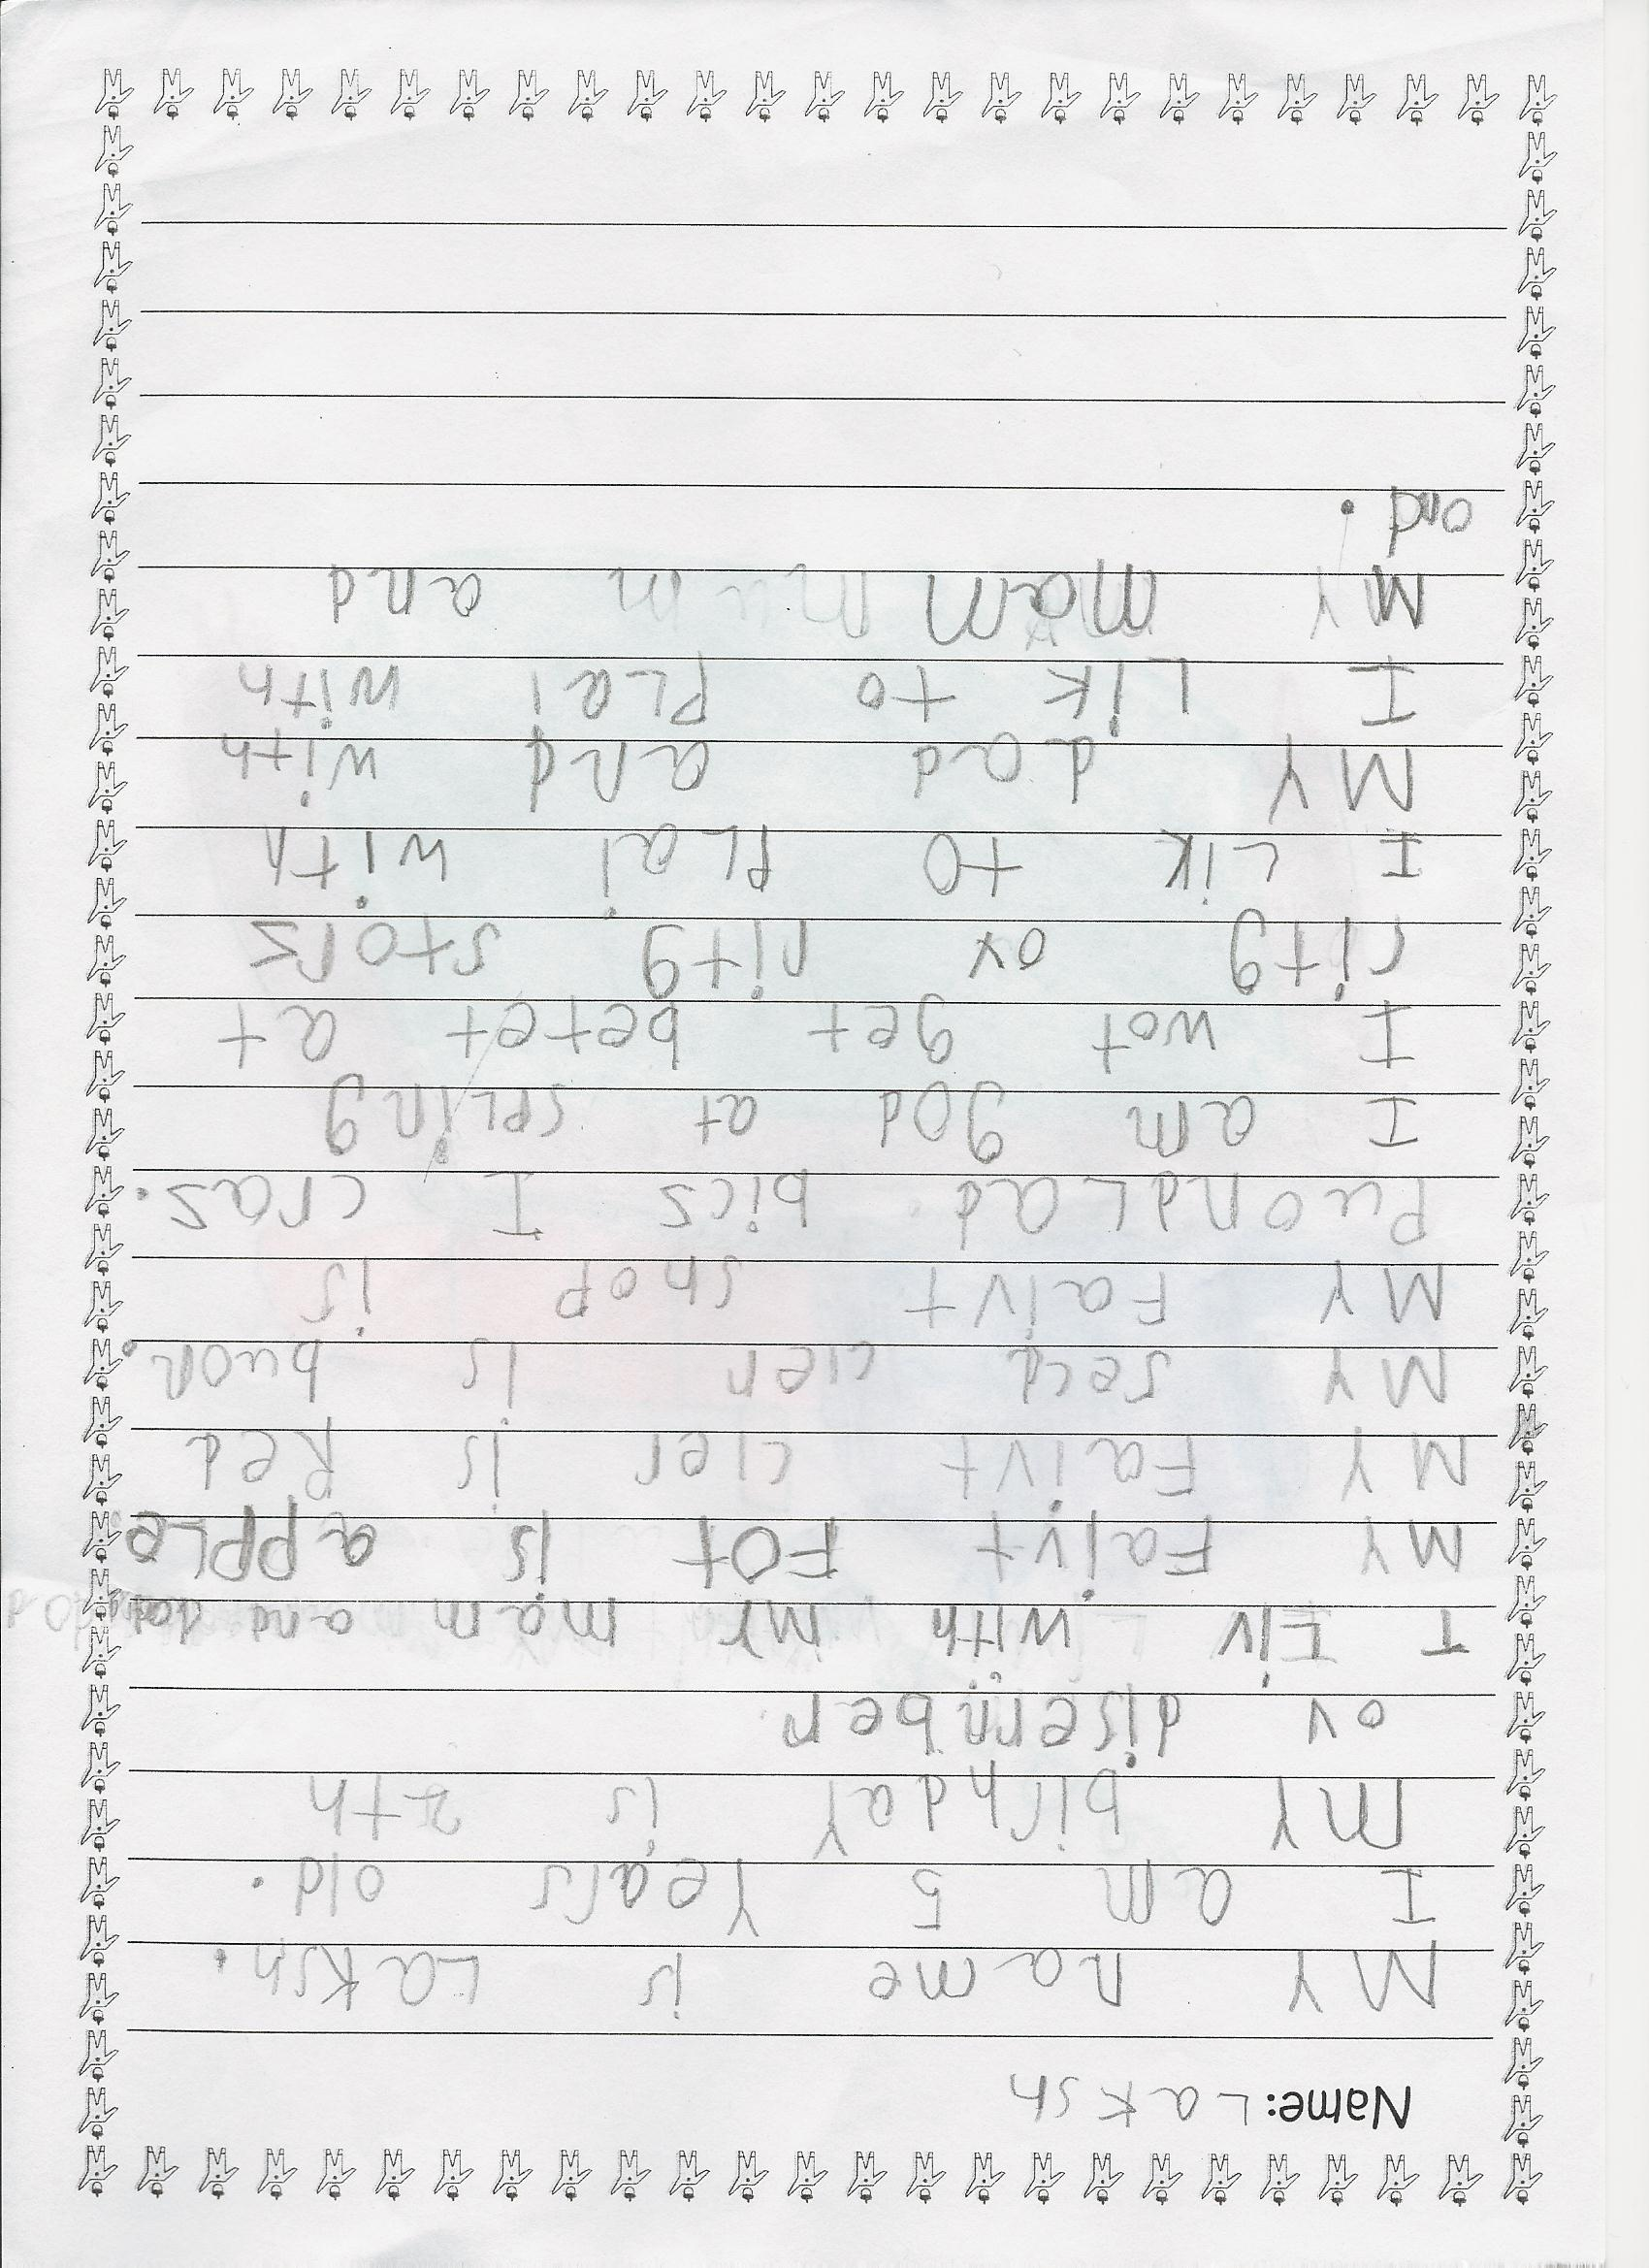 Name: Laksh
MY name is Laksh.
I am 5 Years old.
MY birhday is 2th
ov disember
I Liv with MY mam and dad
MY Faivt FOt is apple.
MY Faivt cler is Red
MY secd cler is buon.
MY Faivt shop is
PuondLad bics I cras.
I am god at spling
I wot get betet at
ritg ov ritg stors
I Lik to PLai with
MY dad and with
I Lik to PLai with
MY mam mum and
ond.